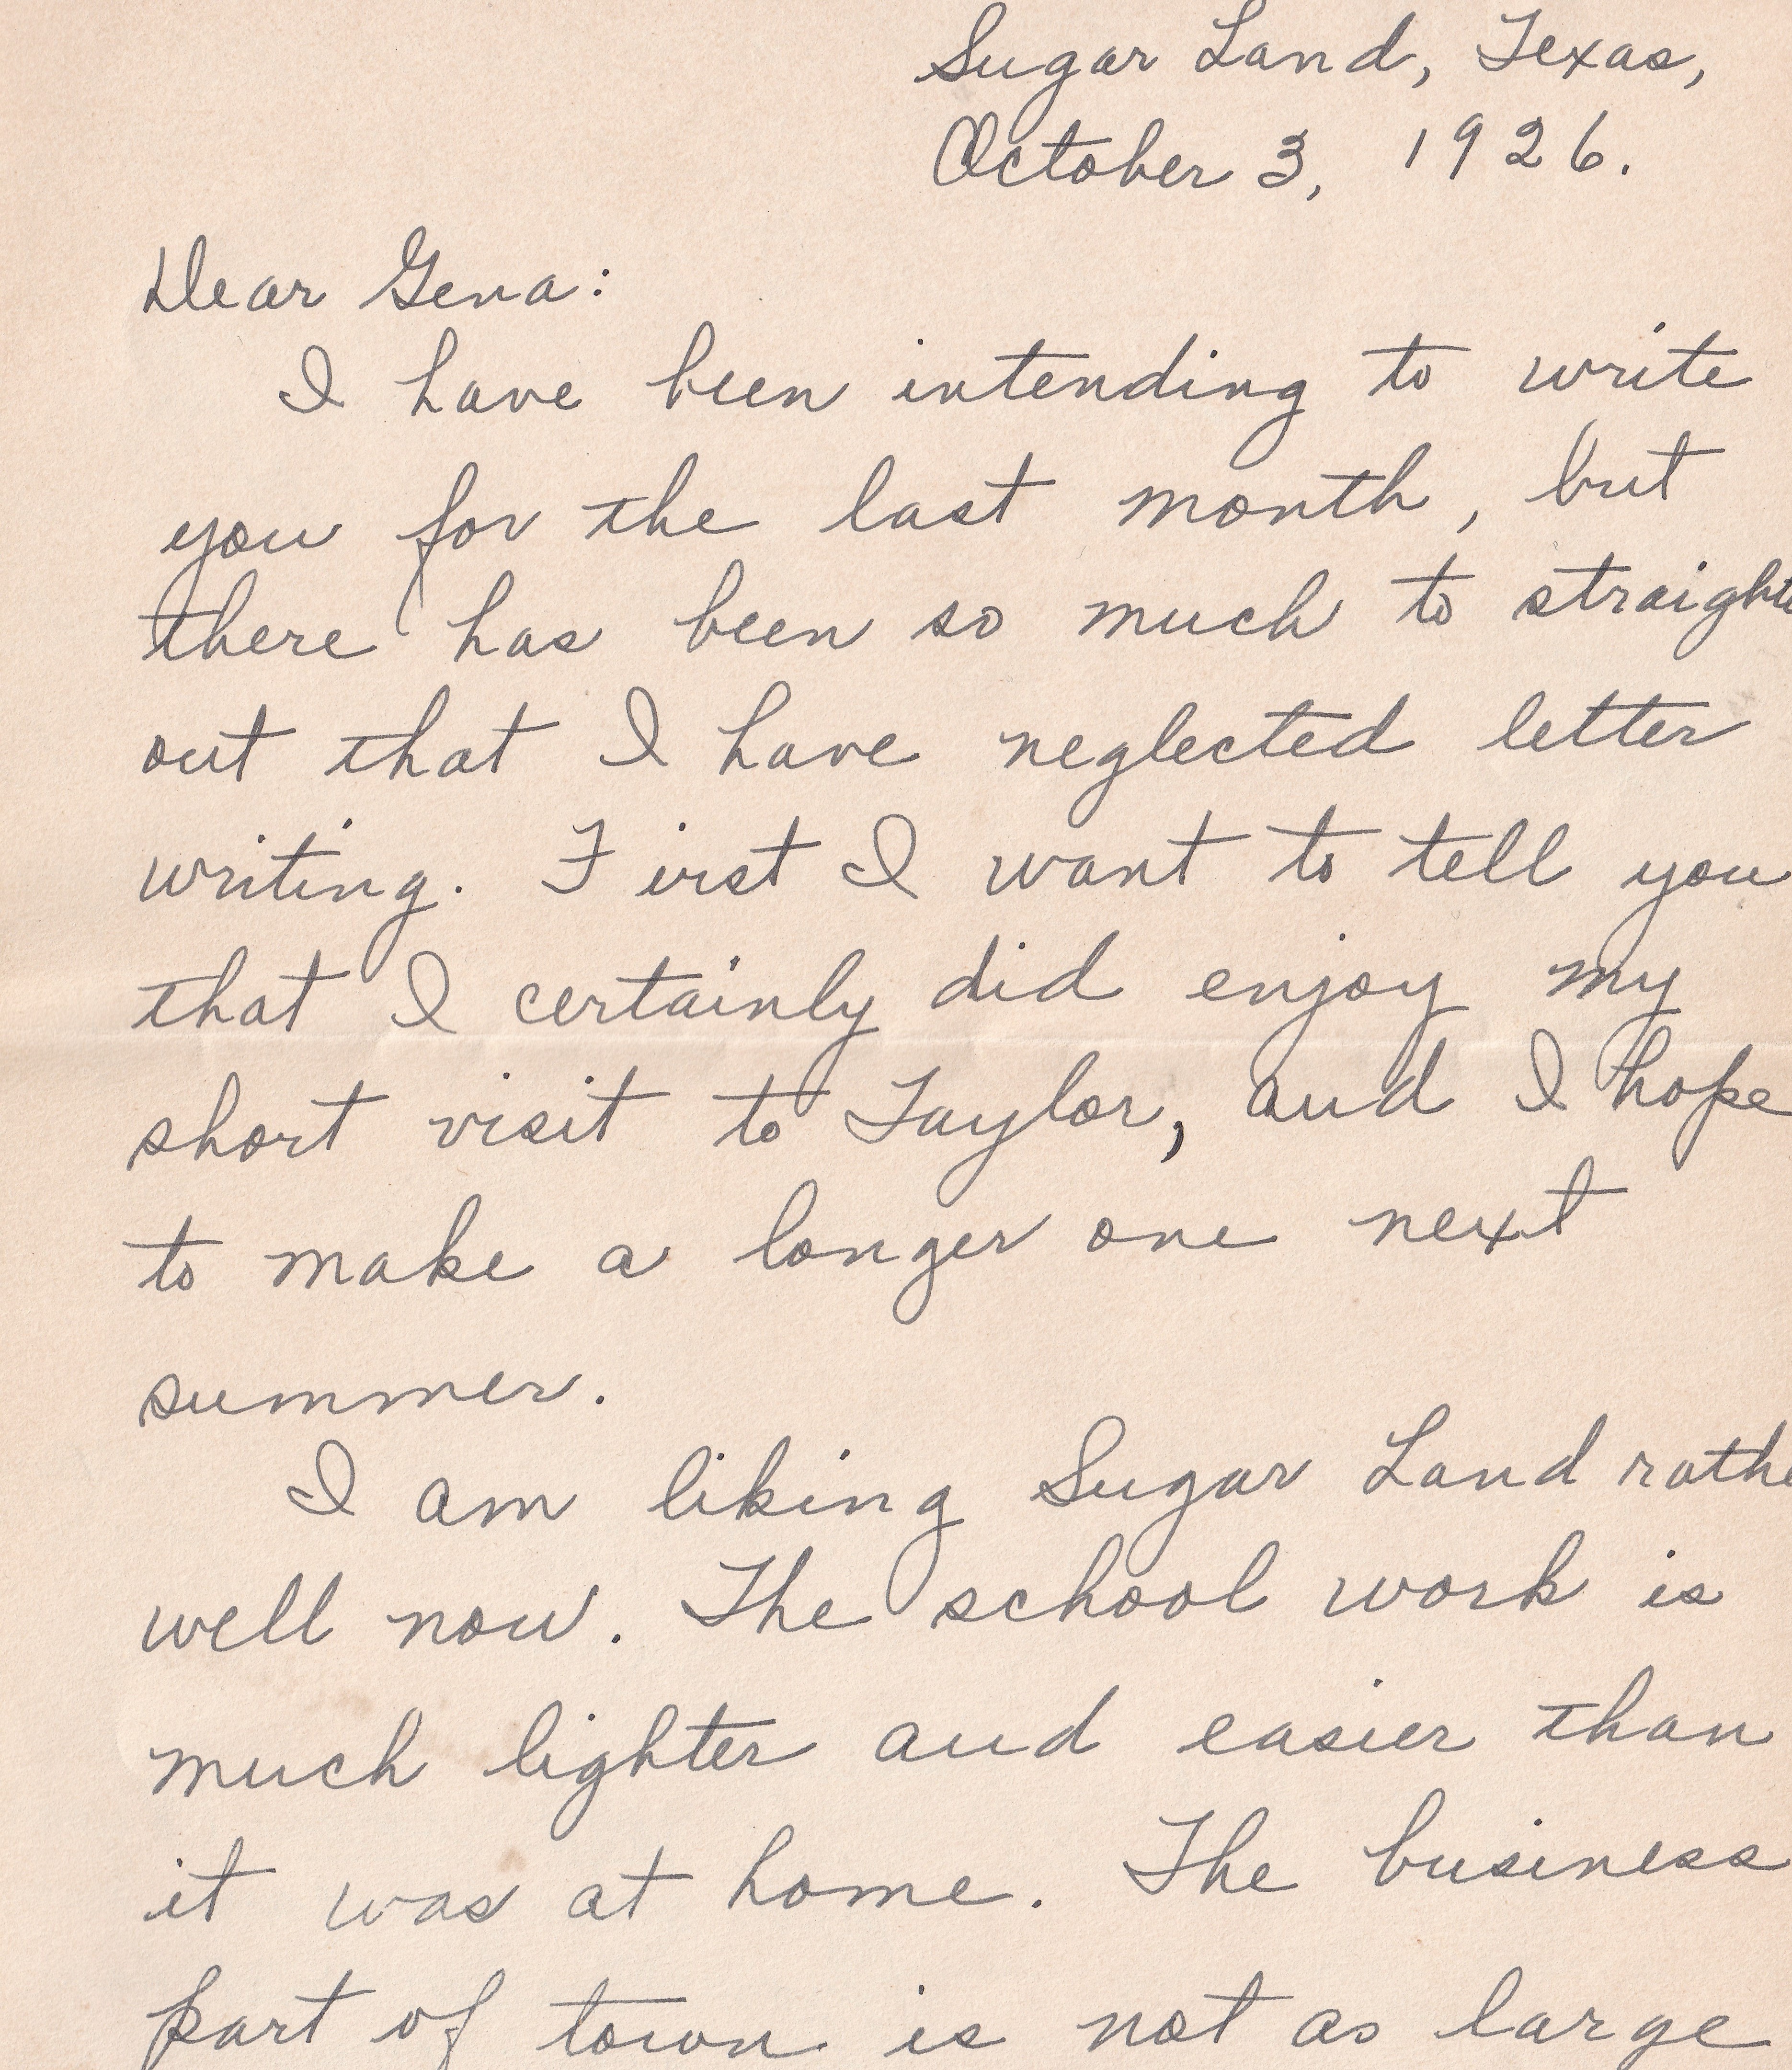 Sugar Land, Texas,
October 3, 1926.
Dear Gena:
I have been intending to write
you for the last month, but
there has been so much to straighte
out that I have neglected letter
writing. First I want to tell you
that I certainly did enjoy my
short visit to Taylor, and I hope
to make a longer one next
summer.
I am liking Sugar Land rathe
well now. The school work is
much lighter and easier than
it was at home. The business
part of town is not as large